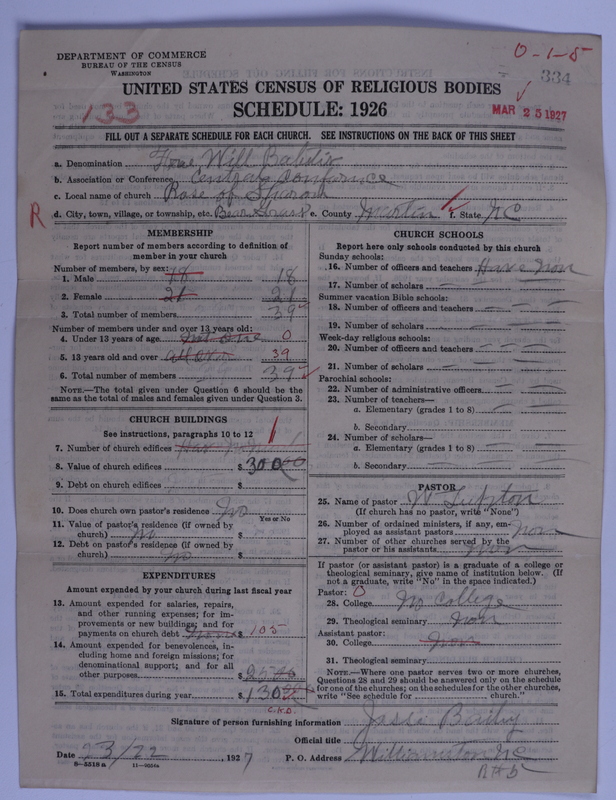 DEPARTMENT OF COMMERCE
BUREAU OF THE CENSUS
WASHINGTON
0-1-5
334
UNITED STATES CENSUS OF RELIGIOUS BODIES
SCHEDULE: 1926
133
MAR 25 1927
FILL OUT A SEPARATE SCHEDULE FOR EACH CHURCH. SEE INSTRUCTIONS ON THE BACK OF THIS SHEET
a. Denomination Free Will Babtix
b. Association or Conference Central Confarnce
c. Local name of church Rose of Sharon
R d. City, town, village, or township, etc. Bear Grass e. County Martin f. State N C
MEMBERSHIP
Report number of members according to definition of
member in your church
Number of members, by sex:
1. Male 18 18
2. Female 21 21
3. Total number of members 39
Number of members under and over 13 years old:
4. Under 13 years of age 0
5. 13 years old and over all over 39
6. Total number of members 39
NOTE.—The total given under Question 6 should be the
same as the total of males and females given under Question 3.
CHURCH BUILDINGS
See instructions, paragraphs 10 to 12
7. Number of church edifices 1
8. Value of church edifices $ 300
9. Debt on church edifices $
10. Does church own pastor's residence? No
Yes or No
11. Value of pastor's residence (if owned by
church) No $
12. Debt on pastor's residence (if owned by
church) no $
EXPENDITURES
Amount expended by your church during last fiscal year
13. Amount expended for salaries, repairs,
and other running expenses; for im-
provements or new buildings; and for
payments on church debt $ 105
14. Amount expended for benevolences, in-
cluding home and foreign missions; for
denominational support; and for all
other purposes $
15. Total expenditures during year $ 130
C.K.D.
CHURCH SCHOOLS
Report here only schools conducted by this church
Sunday schools:
16. Number of officers and teachers Have Non
17. Number of scholars
Summer vacation Bible schools:
18. Number of officers and teachers
19. Number of scholars
Week-day religious schools:
20. Number of officers and teachers
21. Number of scholars
Parochial schools:
22. Number of administrative officers
23. Number of teachers—
a. Elementary (grades 1 to 8)
b. Secondary
24. Number of scholars—
a. Elementary (grades 1 to 8)
b. Secondary
PASTOR
25. Name of pastor W Lupton
(If church has no pastor, write "None")
26. Number of ordained ministers, if any, em-
ployed as assistant pastors Non
27. Number of other churches served by the
pastor or his assistants Non
If pastor (or assistant pastor) is a graduate of a college or
theological seminary, give name of institution below. (If
not a graduate, write "No" in the space indicated.)
Pastor: 0
28. College No College
29. Theological seminary Non
Assistant pastor:
30. College Non
31. Theological seminary
NOTE.—Where one pastor serves two or more churches,
Questions 28 and 29 should be answered only on the schedule
for one of the churches; on the schedules for the other churches,
write "See schedule for church."
Signature of person furnishing information Jasse Baily
Official title
Date 23/22 1927 P. O. Address Williamston N C
8-5518a 11-9504a